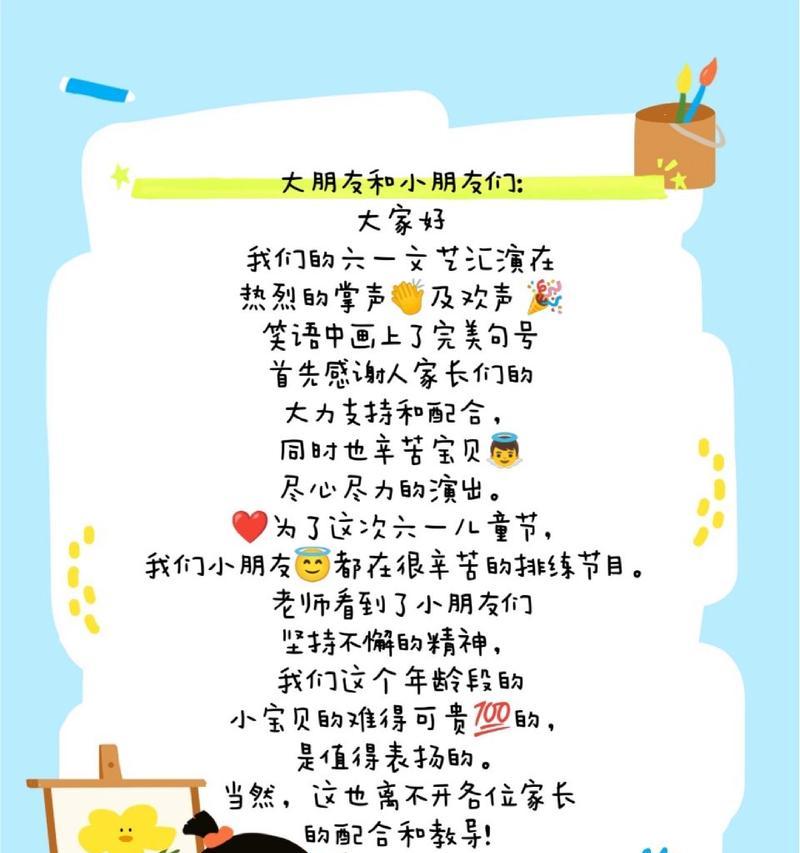 大朋友和小朋友们:
大家好
我们的六一文艺汇演在
热烈的掌声👏及欢声🎉
笑语中画上了完美句号
首先感谢人家长们的
大力支持和配合，
同时也辛苦宝贝👼
尽心尽力的演出。
❤️为了这次六一儿童节，
我们小朋友😇都在很辛苦的排练节目。
老师看到了小朋友们
坚持不懈的精神，
我们这个年龄段的
小宝贝的难得可贵💯的，
是值得表扬的。
当然，这也离不开各位家长
的配合和教导!